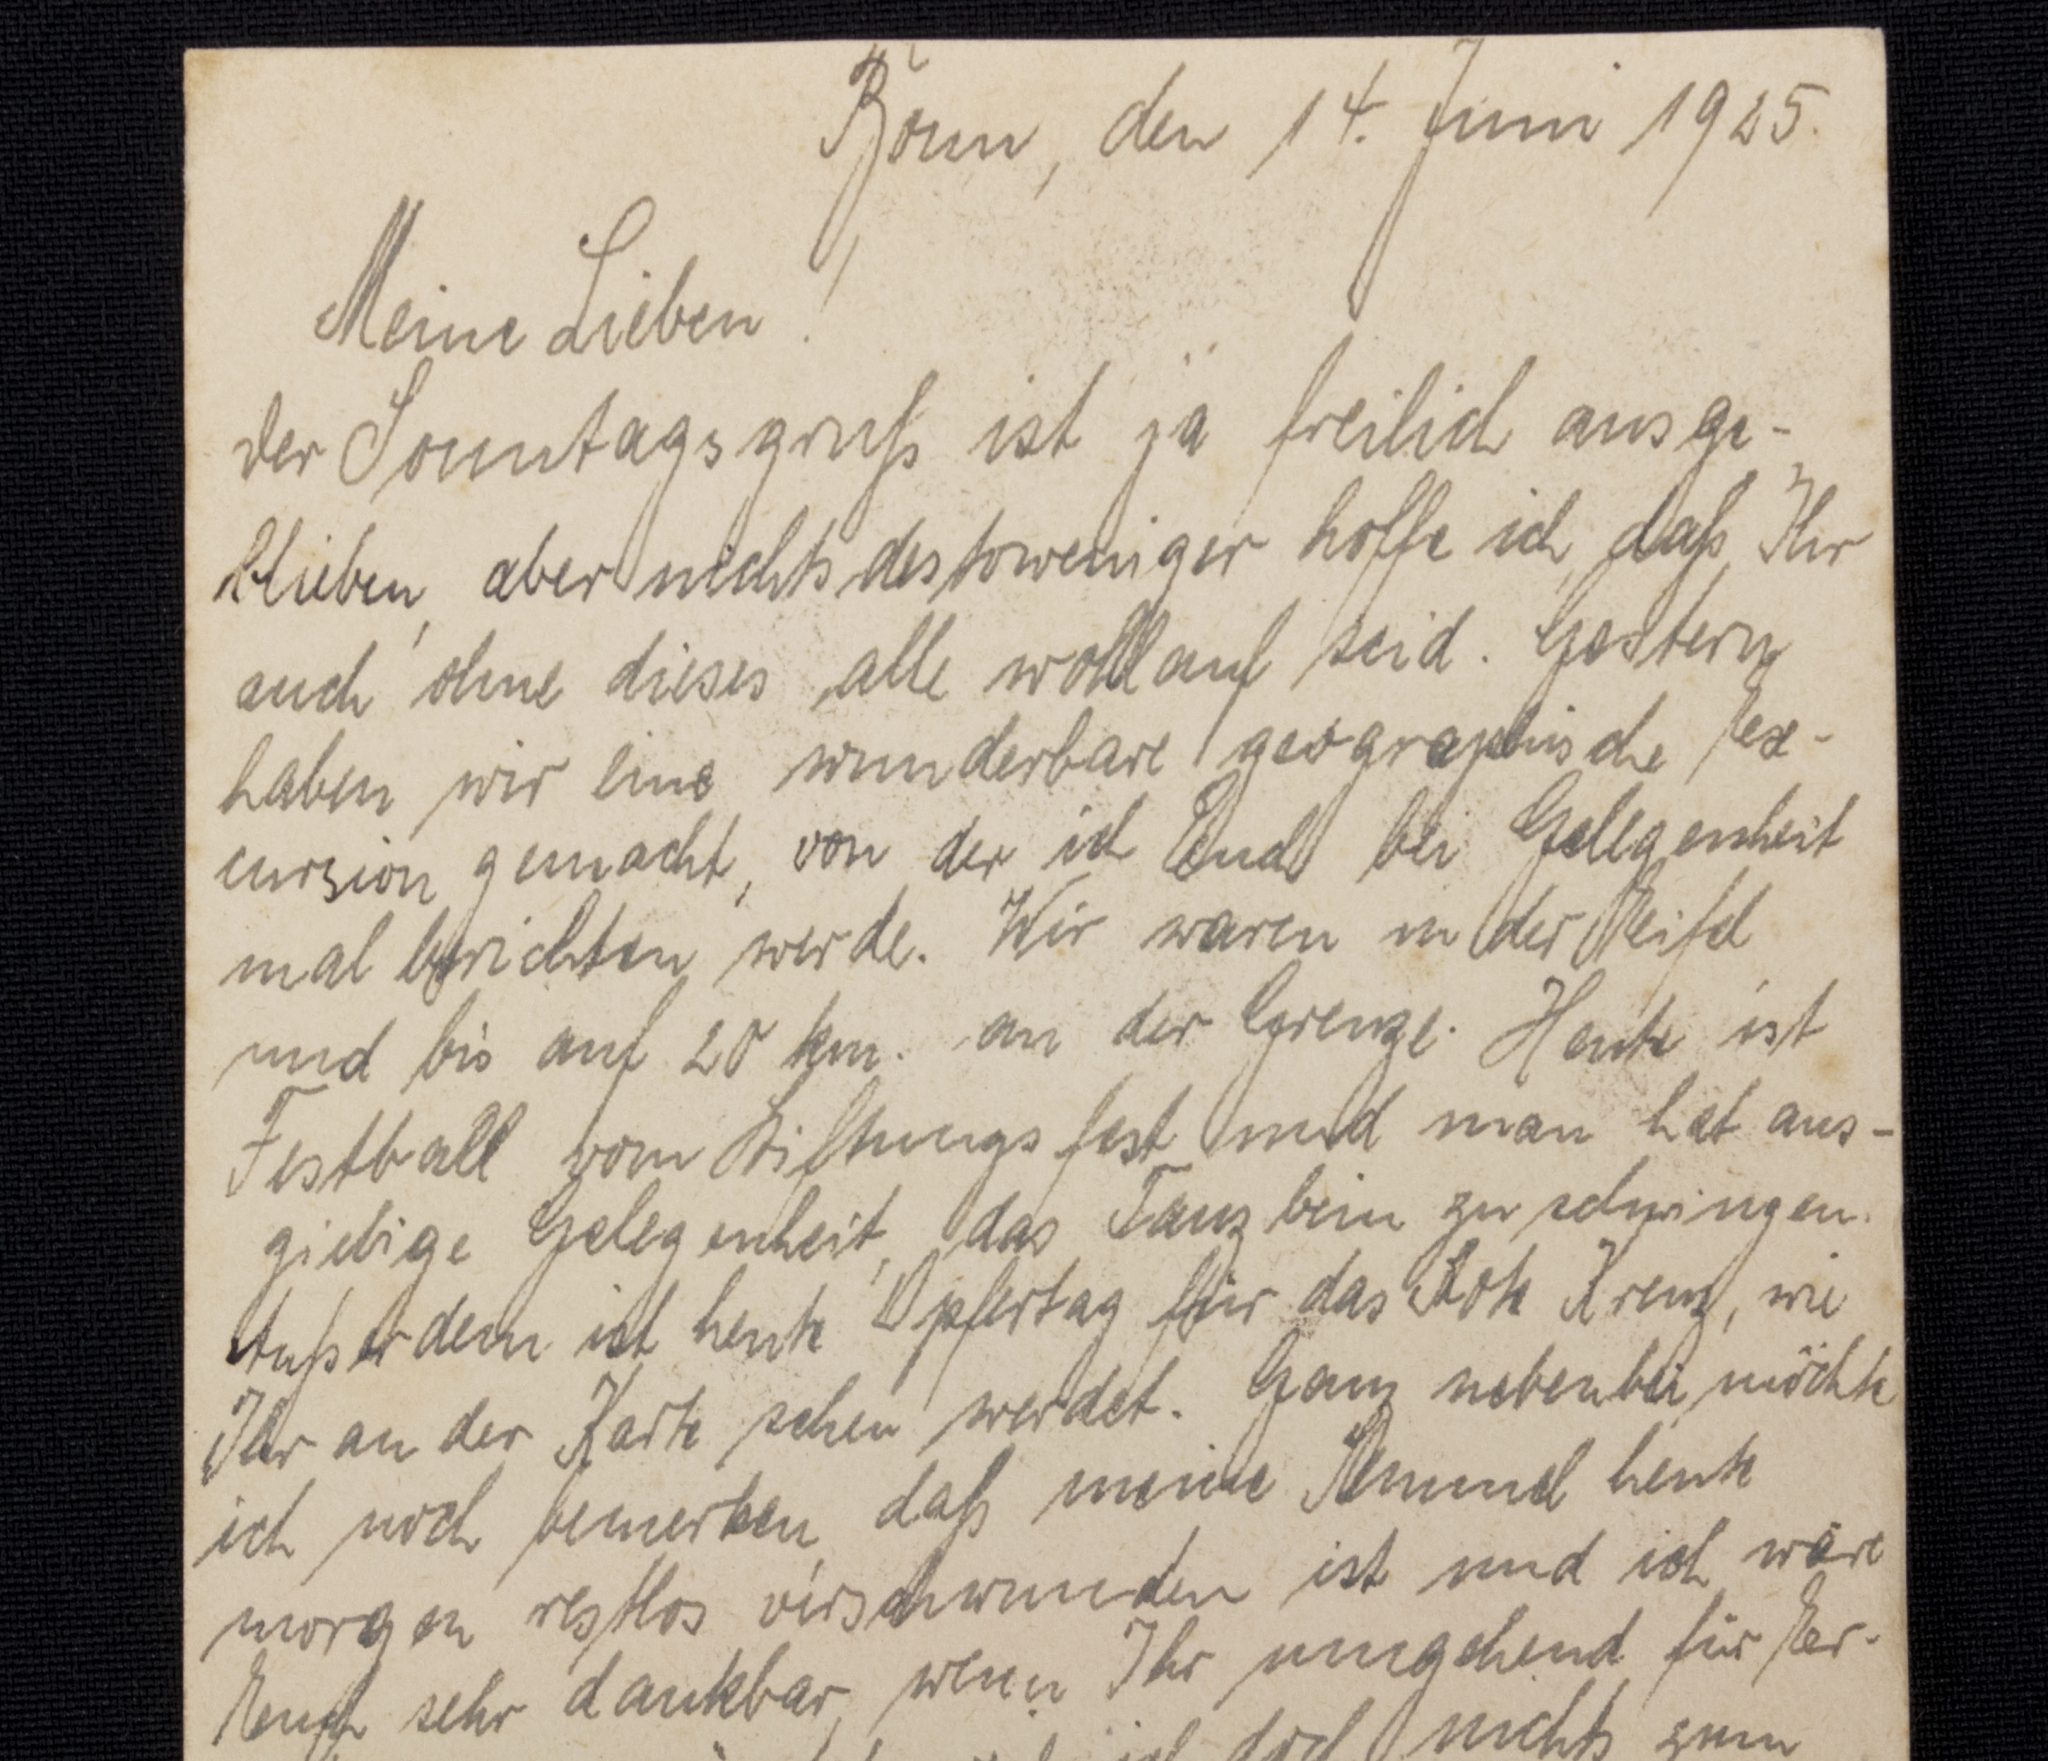 Bonn, den 14. Juni 1925.
Meine Lieben!
der Sonntagsgruß ist ja freilich ausge-
blieben, aber nichtsdestoweniger hoffe ich, daß Ihr
auch ohne dieses alle wohlauf seid. Gestern
haben wir eine wunderbare geographische Ex-
cursion gemacht, von der ich Euch bei Gelegenheit
mal berichten werde. Wir waren in der Eifel
und bis auf 20 km. an der Grenze. Heute ist
Festball vom Stiftungsfest und man hat aus-
giebige Gelegenheit, das Tanzbein zu schwingen.
Außerdem ist heute Opfertag für das Rote Kreuz, wie
Ihr an der Karte sehen werdet. Ganz nebenbei möchte
ich noch bemerken, daß meine heute
morgen restlos verschwunden ist und ich wäre
Euch sehr dankbar, wenn Ihr umgehend für Er-
ich doch nichts zum